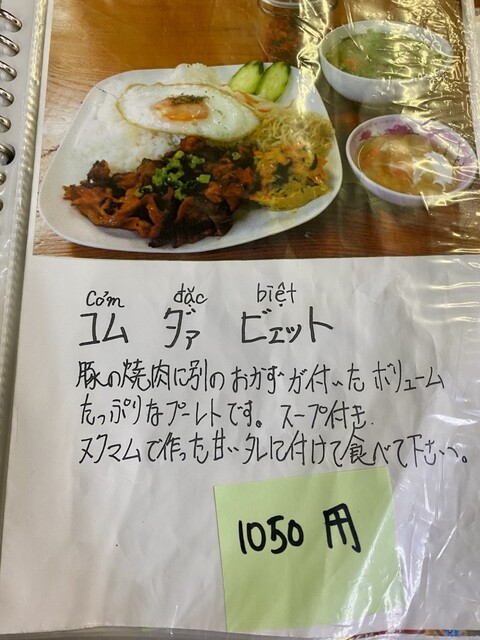 Cơm đặc biệt
コム ダァ ビェット
豚の焼肉に別のおかずが付いたボリューム
たっぷりなプーレトです。スープ付き.
ヌクマムで作った甘いタレに付けて食べて下さい。
1050 円